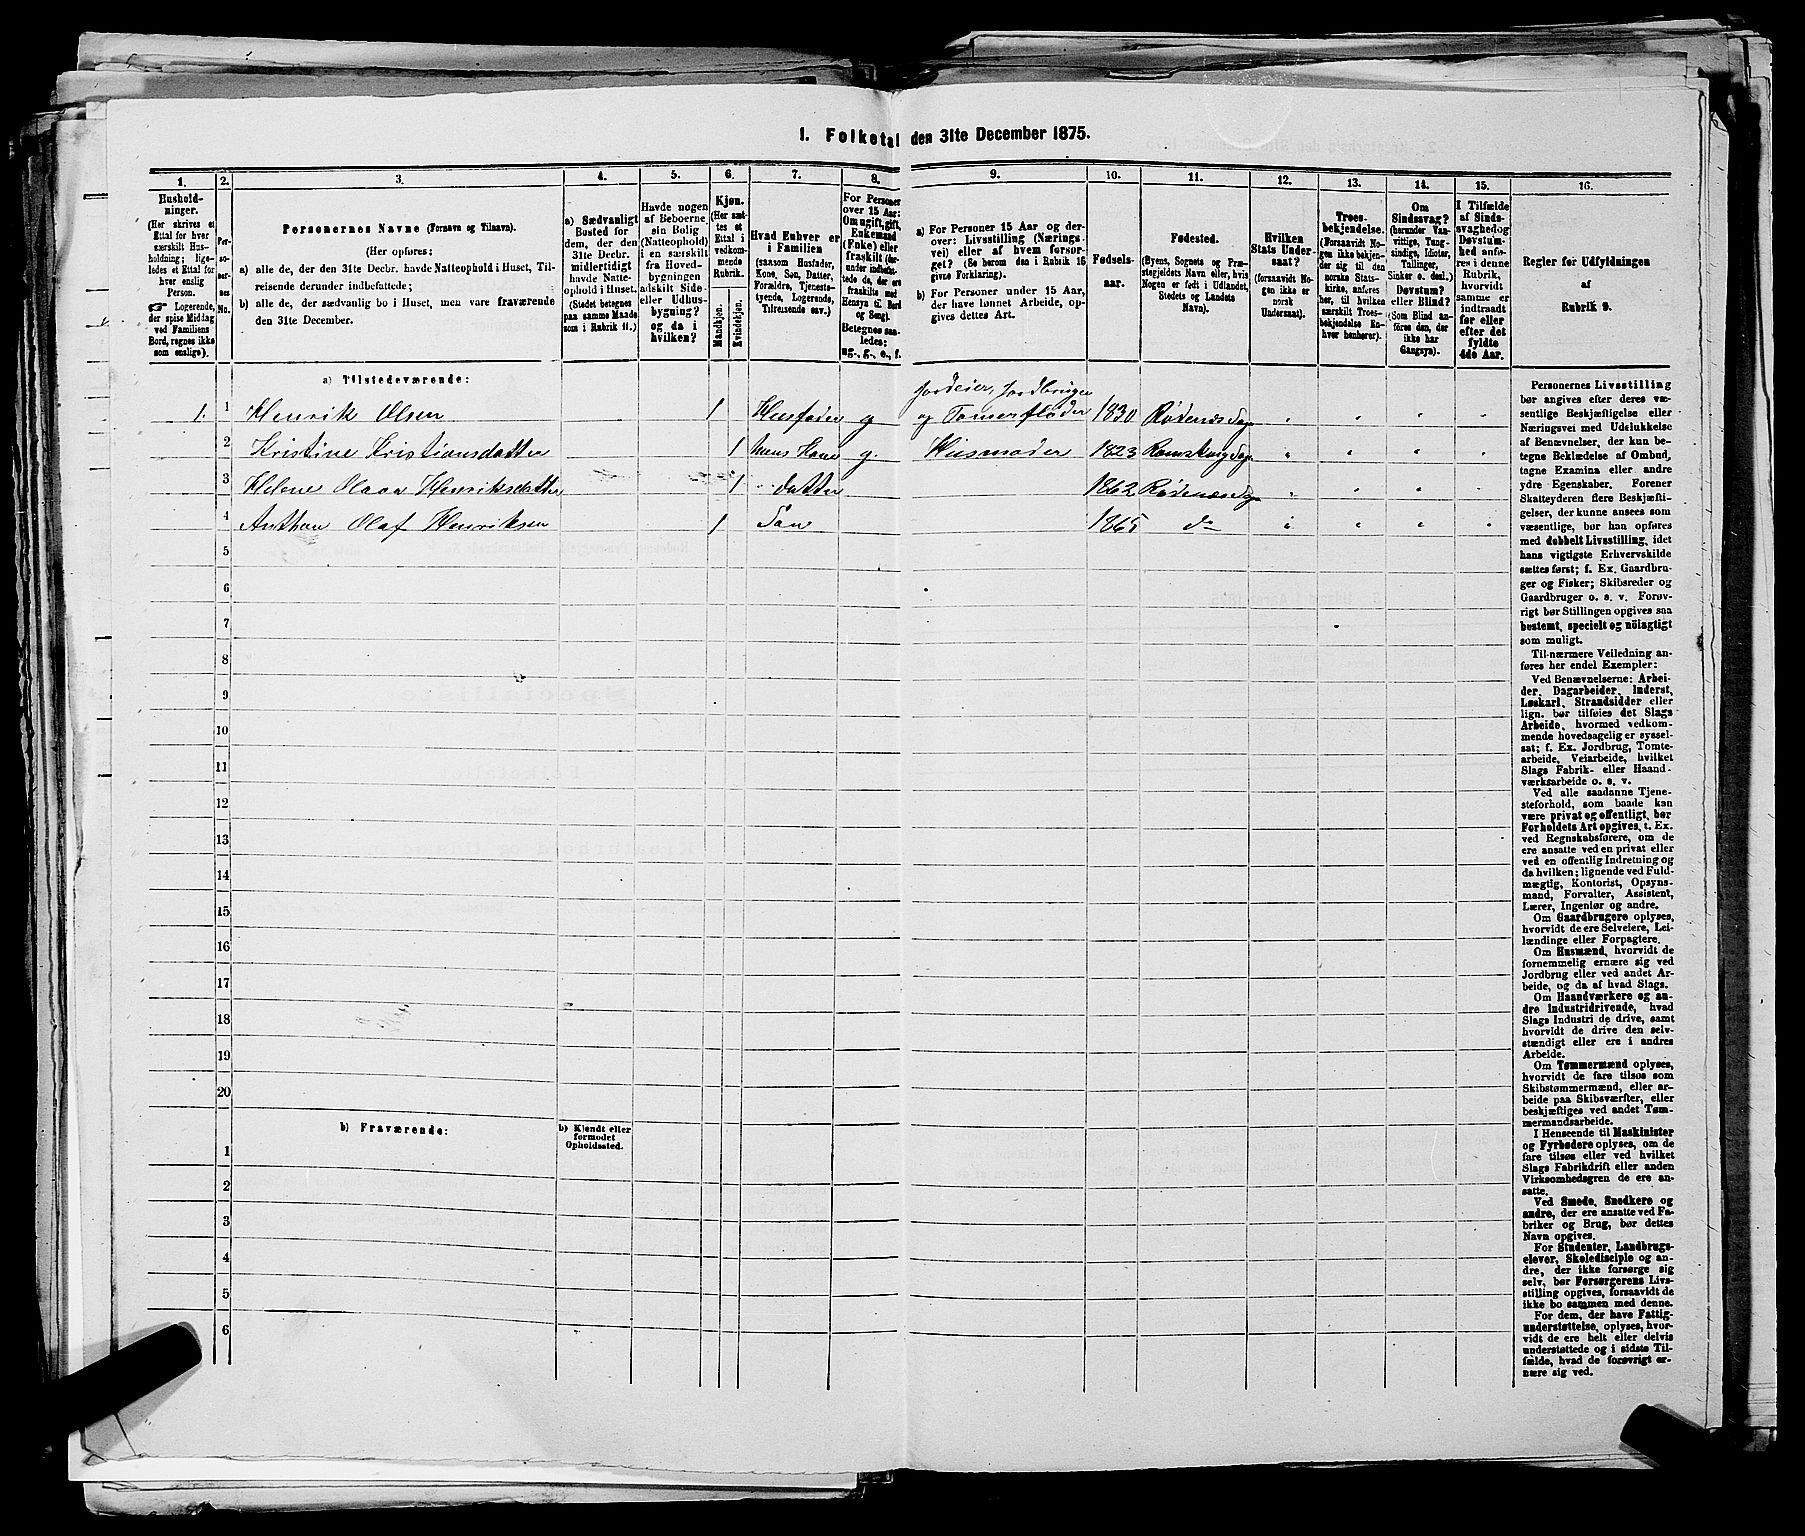 1. Folketal den 31te December 1875.
1. 2. 3. 4. 5. 6. 7. 8. 9. 10. 11. 12. 13. 14. 15. 16.
Hushold-
ninger.
(Her skrives et
Ettal for hver
særskilt Hus-
holdning; lige-
ledes et Ettal for
hver enslig
Person.
☞ Logerende,
der spise Middag
ved Familiens
Bord, regnes ikke
som enslige).
Per-
so-
ner-
nes
No.
Personernes Navne (Fornavn og Tilnavn).
(Her opføres:
a) alle de, der den 31te Decbr. havde Natteophold i Huset, Til-
reisende derunder indbefattede;
b) alle de, der sædvanlig bo i Huset, men vare fraværende
den 31te December.
a) Sædvanligt
Bosted for
dem, der den
31te Decbr.
midlertidigt
havde Natte-
ophold i Huset.
(Stedet betegnes
paa samme Maade
som i Rubrik 11.)
Havde nogen
af Beboerne
sin Bolig
(Natteophold)
i en særskilt
fra Hoved-
bygningen
adskilt Side-
eller Udhus-
bygning?
og da i
hvilken?
Kjøn.
(Her sæt-
tes et
Ettal i
vedkom-
mende
Rubrik.
Mandkjøn.
Kvindekjøn.
Hvad Enhver er
i Familien
(saasom Husfader,
Kone, Søn, Datter,
Forældre, Tjeneste-
tyende, Logerende,
Tilreisende osv.)
For Personer
over 15 Aar:
Om ugift, gift,
Enkemand
(Enke) eller
fraskilt (der-
under indbefat-
tede de, der ere
fraskilte med
Hensyn til Bord
og Seng).
Betegnes saa-
ledes:
ug., g., e., f.
a) For Personer 15 Aar og der-
over: Livsstilling (Nærings-
vei) eller af hvem forsør-
get? (Se herom den i Rubrik 16
givne Forklaring).
b) For Personer under 15 Aar,
der have lønnet Arbeide, op-
gives dettes Art.
Fødsels-
aar.
Fødested.
(Byens, Sognets og Præ-
stegjeldets Navn eller, hvis
Nogen er født i Udlandet,
Stedets og Landets
Navn).
Hvilken
Stats Under-
saat?
(forsaavidt No-
gen ikke er
norsk
Undersaat).
Troes-
bekjendelse.
(Forsaavidt No-
gen ikke bekjen-
der sig til den
norske Stats-
kirke, anføres
her, til hvilken
særskilt Troes-
bekjendelse En-
hver henhører).
Om
Sindssvag?
(herunder Van-
vittige, Tung-
sindige, Idioter,
Tullinger,
Sinker o. desl.)
Døvstum?
eller Blind?
(Som Blind an-
føres den, der
ikke har
Gangsyn).
I Tilfælde
af Sinds-
svaghed og
Døvstum-
hed anfø-
res i denne
Rubrik,
hvorvidt
samme er
indtraadt
før eller
efter det
fyldte
4de Aar.
Regler for Udfyldningen
af
Rubrik 9.
a) Tilstedeværende:
Jordeier, Jordbruger
1. 1 Henrik Olsen 1 Husfader g og Tømerfløder 1830 Rødenæs
2 Kristine Kristiansdatter 1 hans Kone g. Husmoder 1823
3 Helene Olava Henriksdatter 1 datter 1862 Rødenæs
4 Anthon Olaf Henriksen 1 Søn 1865 do
5
6
7
8
9
10
11
12
13
14
15
16
17
18
19
20
b) Fraværende:
b) Kjendt eller
formodet
Opholdssted.
1
2
3
4
5
6
Personernes Livsstilling
bør angives efter deres væ-
sentlige Beskjæftigelse eller
Næringsvei med Udelukkelse
af Benævnelser, der kun be-
tegne Beklædelse af Ombud,
tagne Examina eller andre
ydre Egenskaber. Forener
Skatteyderen flere Beskjæfti-
gelser, der kunne ansees som
væsentlige, bør han opføres
med dobbelt Livsstilling, idet
hans vigtigste Erhvervskilde
sættes først; f. Ex. Gaardbru-
ger og Fisker; Skibsreder og
Gaardbruger o. s. v. Forøv-
rigt bør Stillingen opgives saa
bestemt, specielt og nøiagtigt
som muligt.
Til nærmere Veiledning an-
føres her endel Exempler:
Ved Benævnelserne: Arbei-
der, Dagarbeider, Inderst,
Løskarl, Strandsidder eller
lign. bør tilføies det Slags
Arbeide, hvormed vedkom-
mende hovedsagelig er syssel-
sat; f. Ex. Jordbrug, Tomte-
arbeide, Veiarbeide, hvilket
Slags Fabrik- eller Haand-
værksarbeide o. s. v.
Ved alle saadanne Tjene-
steforhold, som baade kan
være privat og offentligt, bør
Forholdets Art opgives, t. Ex.
ved Regnskabsførere, om de
ere ansatte ved en privat eller
ved en offentlig Indretning og
da hvilken; lignende ved Fuld-
mægtig, Kontorist, Opsyns-
mand, Forvalter, Assistent,
Lærer, Ingeniør og andre.
Om Gaardbrugere oplyses,
hvorvidt de ere Selveiere, Lei-
lændinge eller Forpagtere.
Om Husmænd, hvorvidt de
fornemmelig ernære sig ved
Jordbrug eller ved andet Ar-
beide, og da af hvad Slags.
Om Haandværkere og an-
dre industridrivende, hvad
Slags Industri de drive, samt
hvorvidt de drive den selv-
stændigt eller ere i andres
Arbeide.
Om Tømmermænd oplyses,
hvorvidt de fare tilsøs som
Skibstømmermænd, eller ar-
beide paa Skibsværfter, eller
beskjæftiges ved andet Tøm-
mermandsarbeide.
I Henseende til Maskinister
og Fyrbødere oplyses, om de
fare tilsøs eller ved hvilket
Slags Fabrikdrift eller anden
Virksomhedsgren de ere an-
satte.
Ved Smede, Snedkere og
andre, der ere ansatte ved Fa-
briker og Brug, bør dettes
Navn opgives.
For Studenter, Landbrugs-
elever, Skoledisciple og an-
dre, der ikke forsørge sig
selv, bør Forsørgerens Livs-
stilling opgives, forsaavidt de
ikke bo sammen med denne.
For dem, der have Fattig-
understøttelse, oplyses, hvor-
vidt de ere helt eller delvis
understøttede og i sidste Til-
fælde, hvad de forøvrigt er-
nære sig ved.